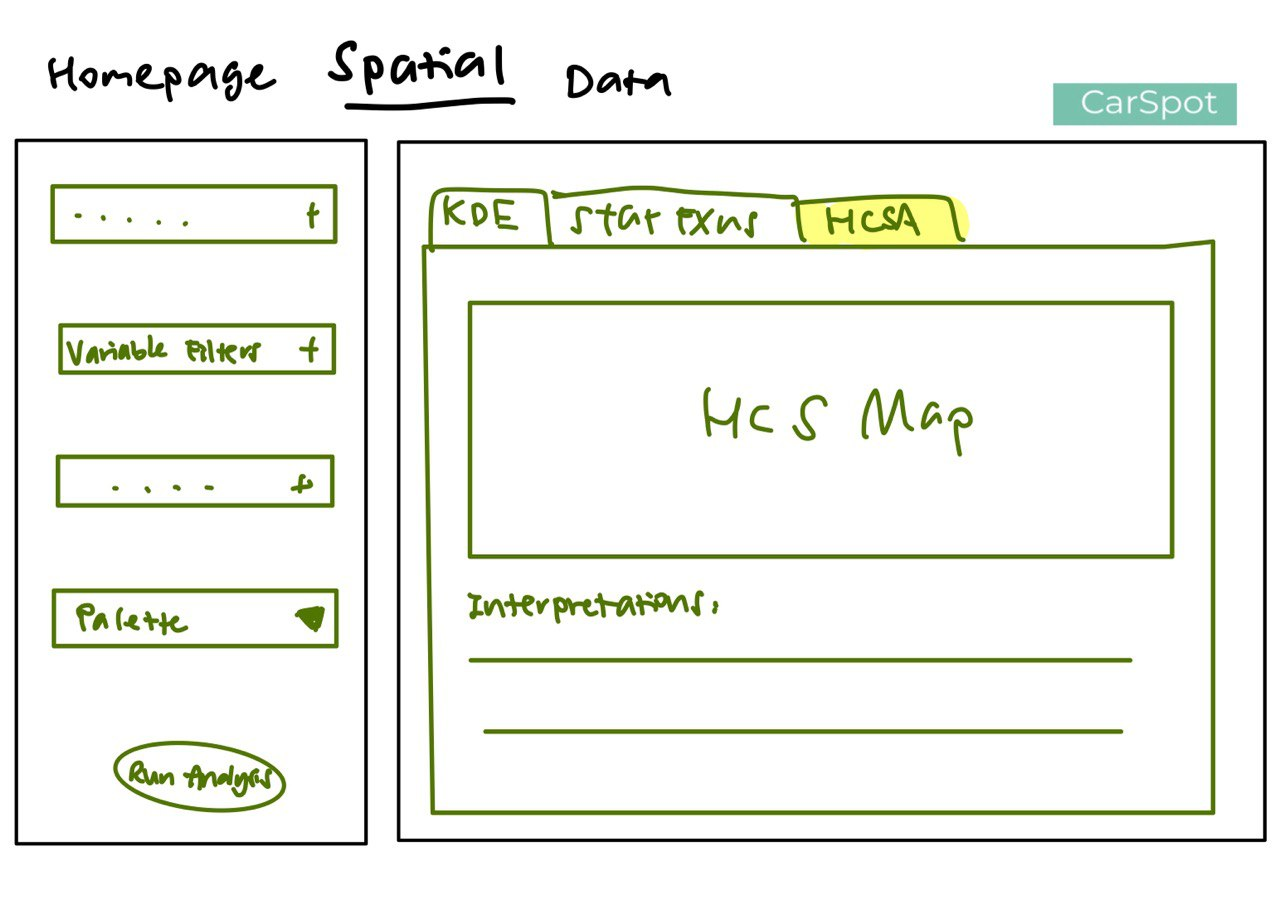 Homepage Spatial Data
CarSpot
. . . . . +
Variable Filters +
. . . . +
Palette
Run Analysis
KDE Stat HCSA
HCS Map
Interpretations: